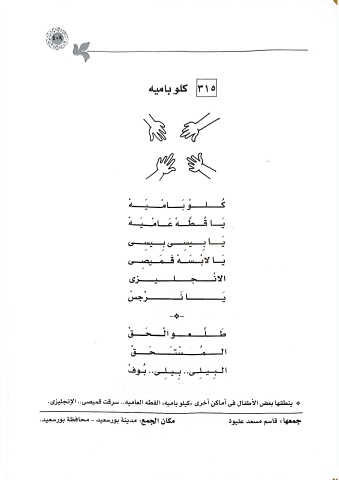 ٤٠٩
٣١٥ كلو باميه
كُـلـو بَـامْـيَـهْ
يَـا قُـطَّـهْ عَـامْـيَـهْ
يَـا بِـيـسِـى بِـيـسِـى
يَـا لابْـسَـهْ قَـمِـيـصِـى
الانْـجِـلِـيـزِى
يَـا نَـرْجِسْ
طَـلَّـعـو الْـحَـقْ
الـمُـسْـتَـحَـقْ
الـبِـيـلِـى.. بِـيـلِـى.. بُـوفْ
* ينطقها بعض الأطفال فى أماكن أخرى «كيلو باميه، القطه العاميه.. سرقت قميصى.. الإنجليزى.
جمعها: قاسم مسعد عليوة مكان الجمع: مدينة بورسعيد - محافظة بورسعيد.